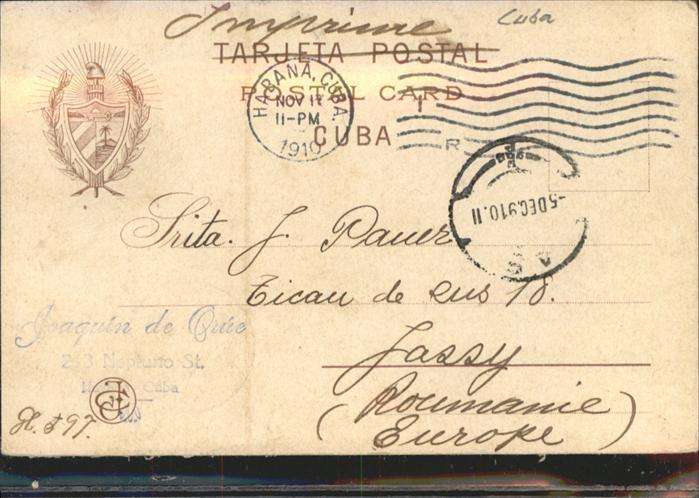 Imprime
Cuba
TARJETA POSTAL
POSTAL CARD
CUBA
HABANA, CUBA.
NOV 17
11-PM
1910
R
-5 DEC. 910. 11
Srita. J. Pauer
Ticau de sus 18.
Jassy
(Roumanie)
Europe
Joaquin de
St.
Cuba